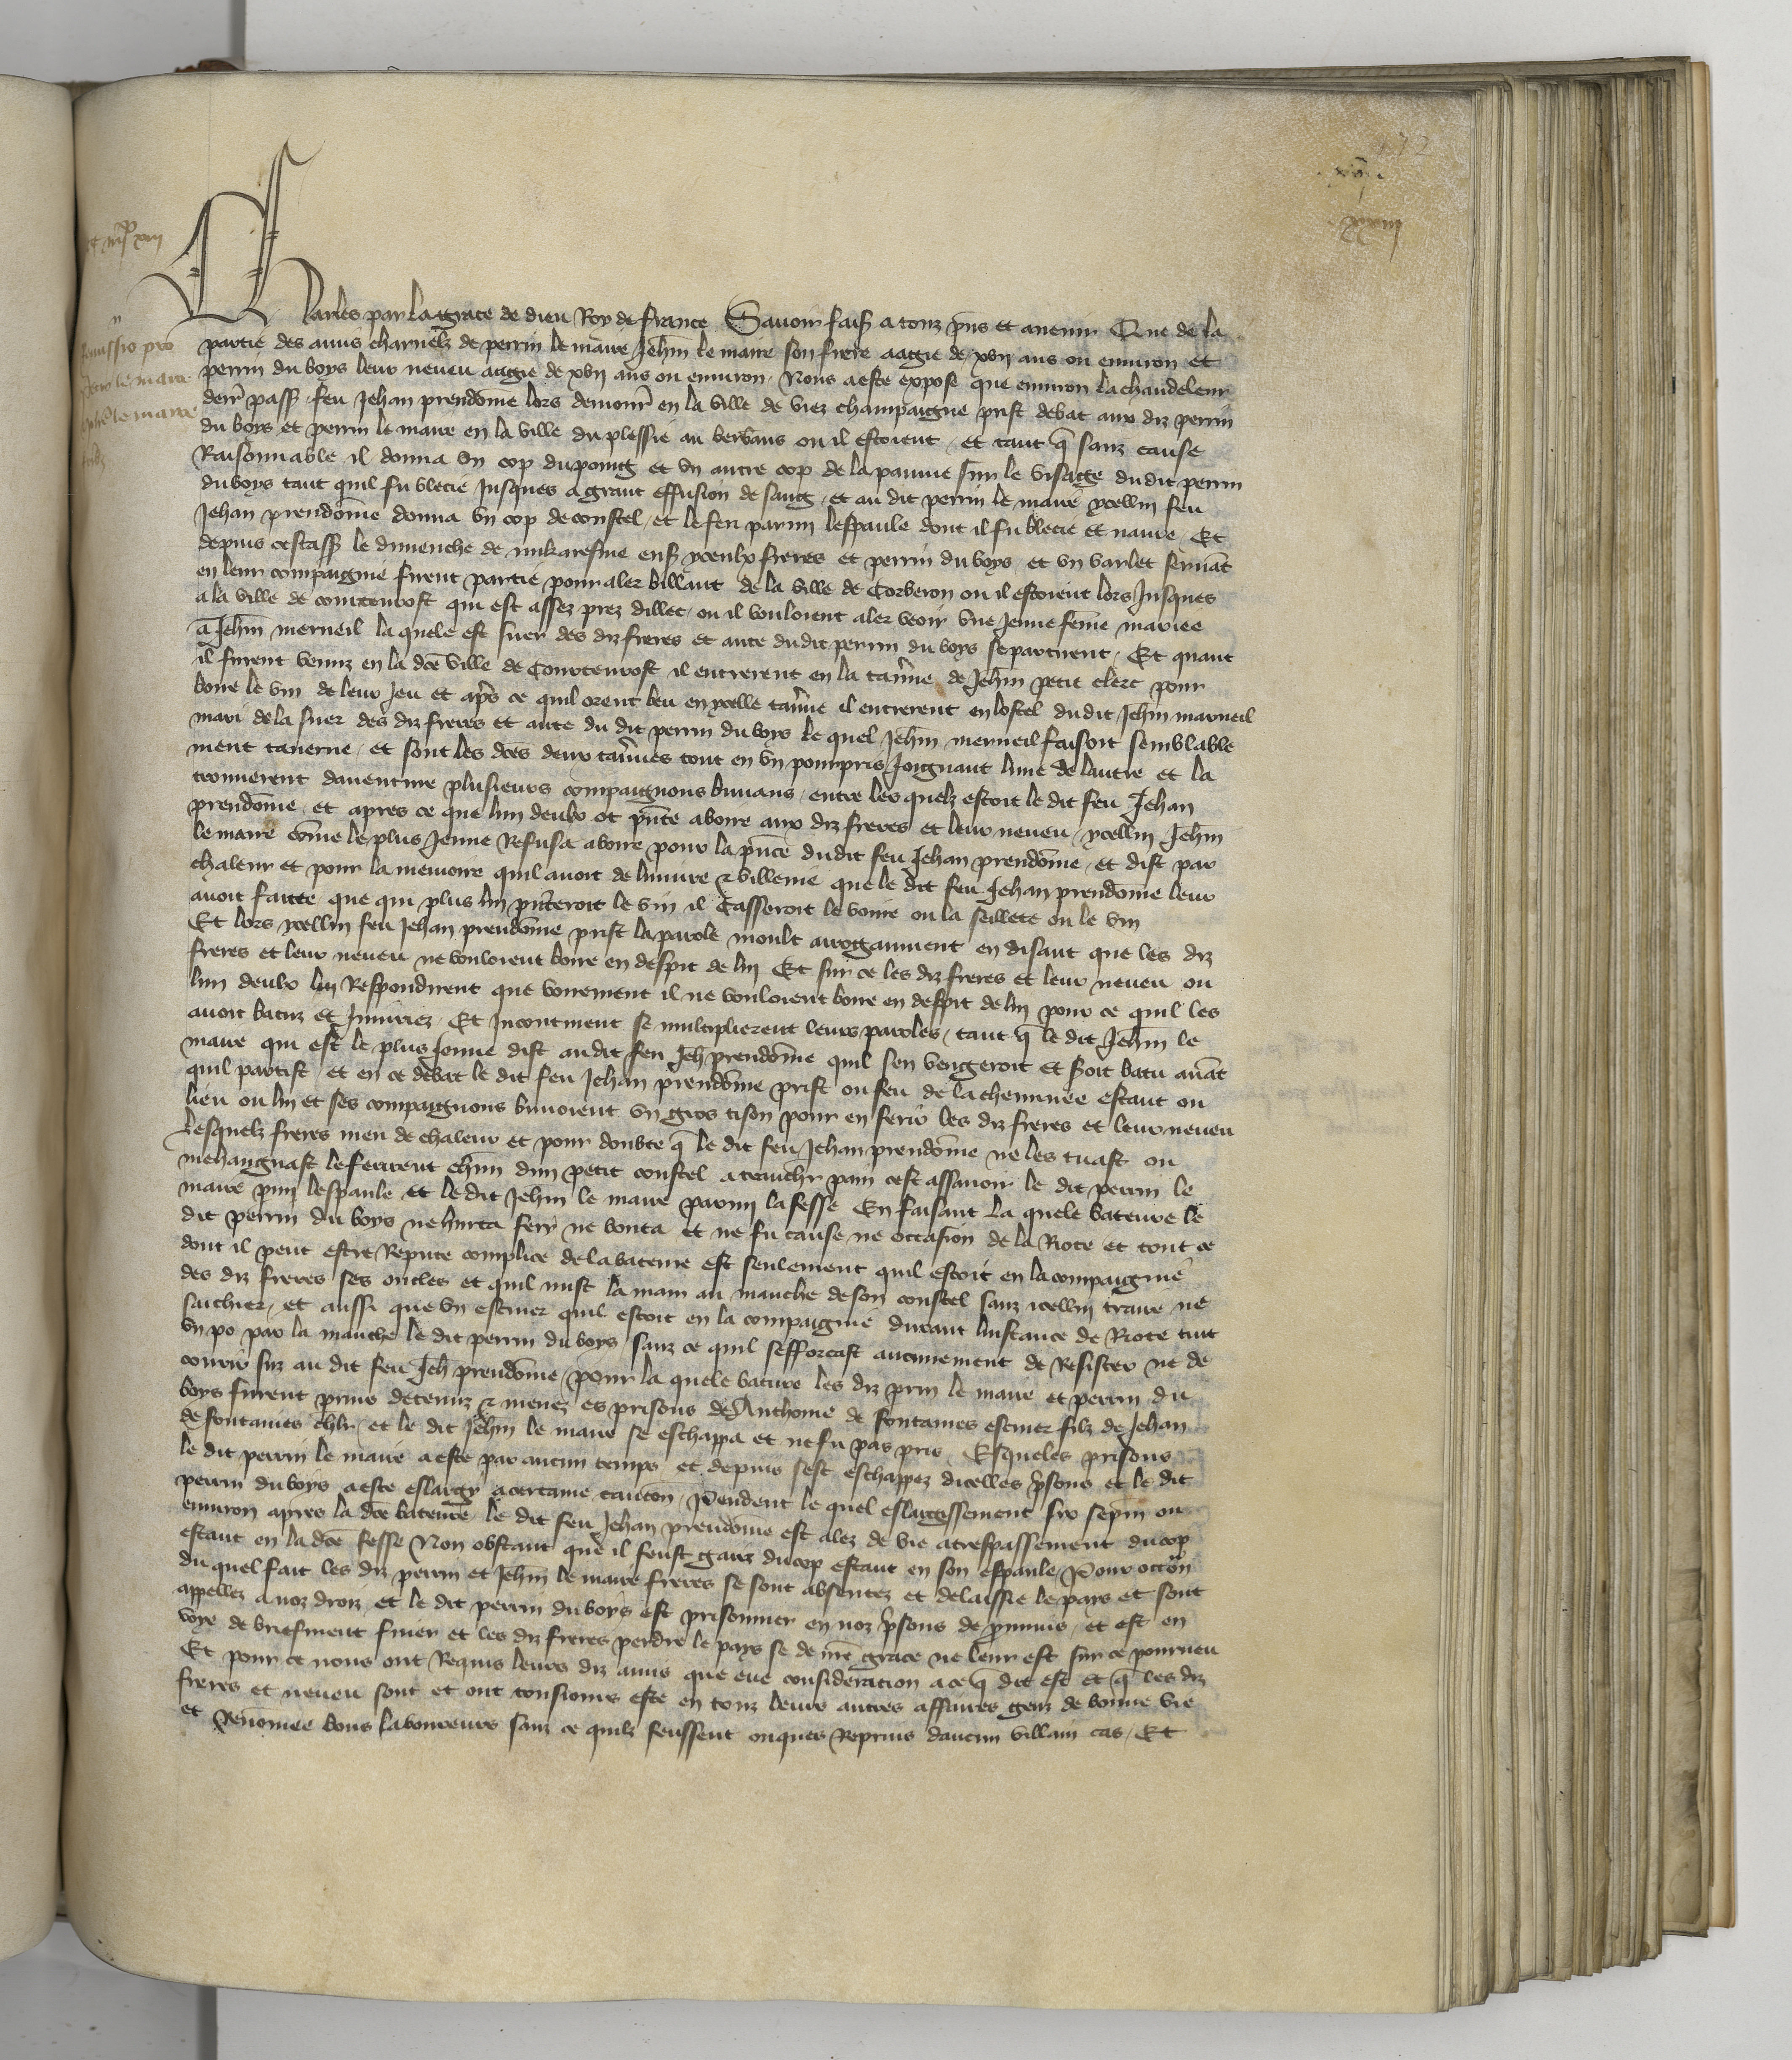 Charles par la grace de dieu Roy de france Savoir faiſ a touz p̄ns et avenir Que de la
partie des amis charnelz de perrin le maire Jeh̄n le maire son frere aagie de xvij ans ou environ et
perrin du boys leur neveu aagie de xvij ans ou environ Nous a este expose que environ la chandeleur
derr̄ pass feu Jehan prendōme lors demour̄ en la ville de viez champaigne prist debat aux diz perrin
du boys et perrin le maire en la ville du plessie au ou il estoient et tant q̄ sanz cause
Raisonnable il donna un cop du poing et un autre cop de la paume sur le visaige dudit perrin
du boys tant quil fu blecie Jusques a grant effusion de sang et au dit perrin le maire ycellui feu
Jehan prendōme donna un cop de coustel et le feri parmi lespaule dont il fu blecie et navre Et
depuis cestass le dimenche de mikaresme ens yceulx freres et perrin du boys et un varlet servāt
en leur compaignie furent partie pour aler billant de la ville de Corberon ou il estoient lors Jusques
a la ville de courtenrost qui est assez prez dillec ou il vouloient aler veoir une Jeune fēme mariee
a Jeh̄n merneil la quele est suer des diz freres et ante dudit perrin du boys se partirent Et quant
il furent venuz en la dce ville de Courtenrost il entrerent en la tav̄ne de Jeh̄n petit clerc pour
boire le vin de leur Jeu et ap̄s ce quil orent beu en ycelle tav̄ne il entrerent en lostel dudit Jeh̄n marneil
mari de la suer des diz freres et ante du dit perrin du boys le quel Jeh̄n merneil faisoit semblable
ment taverne et sont les dces deux tav̄nes tout en un pourpris Joignant lune de lautre et la
trouverent daventure plusieurs compaignons buvans entre les quelz estoit le dit feu Jehan
prendōme et apres ce que lun deulx ot p̄nte a boire aux diz freres et leur neveu ycellui Jeh̄n
le maire cōme le plus Jeune Refusa a boire pour la p̄nce dudit feu Jehan prendōme et dist par
chaleur et pour la memoire quil avoit de linjure & villenie que le dit feu Jehan prendōme leur
avoit faicte que qui plus lui p̄nteroit le vin il casseroit le voirre ou la seillete ou le vin
Et lors ycellui feu Jehan prendōme prist la parole moult arrogaument en disant que les diz
freres et leur neveu ne vouloient boire en despit de lui Et sur ce les diz freres et leur neveu ou
lun deulx lui Respondirent que voirement il ne vouloient boire en despit de lui pour ce quil les
avoit batuz et Injuriez Et Incontinent se multiplierent leurs paroles tant q̄ le dit Jeh̄n le
maire qui est le plus Jonne dist audit feu Jeh̄ prendōme quil sen vengeroit et seroit batu avāt
quil partist et en ce debat le dit feu Jehan prendōme prist ou feu de la cheminee estant ou
lieu ou lui et ses compaignons buvoient un gros tison pour en ferir les diz freres et leur neveu
Lesquelz freres meu de chaleur et pour doubte q̄ le dit feu Jehan prendōme ne les tuast ou
mehaignast le ferirent ch̄un dun petit coustel a trenchr pain cest assavoir le dit perrin le
maire p̄mi lespaule et le dit Jeh̄n le maire parmi la fesse En faisant la quele bateure le
dit perrin du boys ne hurta feri ne bouta et ne fu cause ne occasion de la Riote et tout ce
dont il peut estre Repute complice de la bateure est seulement quil estoit en la compaignie
des diz freres ses oncles et quil mist la main au manche de son coustel sanz icellui traire ne
sachier et aussi que un escuier quil estoit en la compaignie durant linstance de Riote tint
un po par la manche le dit perrin du boys sanz ce quil sefforcast aucunement de Resister ne de
courir sur au dit feu Jeh̄ prendōme pour la quele bature les diz prin le maire et perrin du
boys furent prins detenuz & menez es prisons de Anthoine de fontaines escuier filz de Jehan
de fontaines chlr et le dit Jeh̄n le maire se eschappa et ne fu pas pris Esqueles prisons
le dit perrin le maire a este par aucun temps et depuis sest eschappez dicelles p̄sons et le dit
perrin du boys a este eslargy a certaine caucon Pendent le quel eslargissement six sepm̄ ou
environ apres la dce bateure le dit feu Jehan prendōme est alez de vie a trespassement du cop
estant en la dce fesse Non obstant que il feust gariz du cop estant en son espaule Pour occōn
du quel fait les diz perrin et Jeh̄n le maire freres se sont absentez et delaissie le pays et sont
appellez a noz droiz et le dit perrin du boys est prisonnier en noz p̄sons de p̄vins et est en
voye de briefment finer et les diz freres perdre le pays se de nr̄e grace ne leur est sur ce pourveu
Et pour ce nous ont Requis leurs diz amis que eue consideration a ce q̄ dit est et q̄ les diz
freres et neveu sont et ont tousiours este en touz leurs autres affaires genz de bonne vie
et Renomee bons laboureurs sanz ce quilz feussent onques Reprins daucun villain cas Et
Remissio pro
le maire
le maire